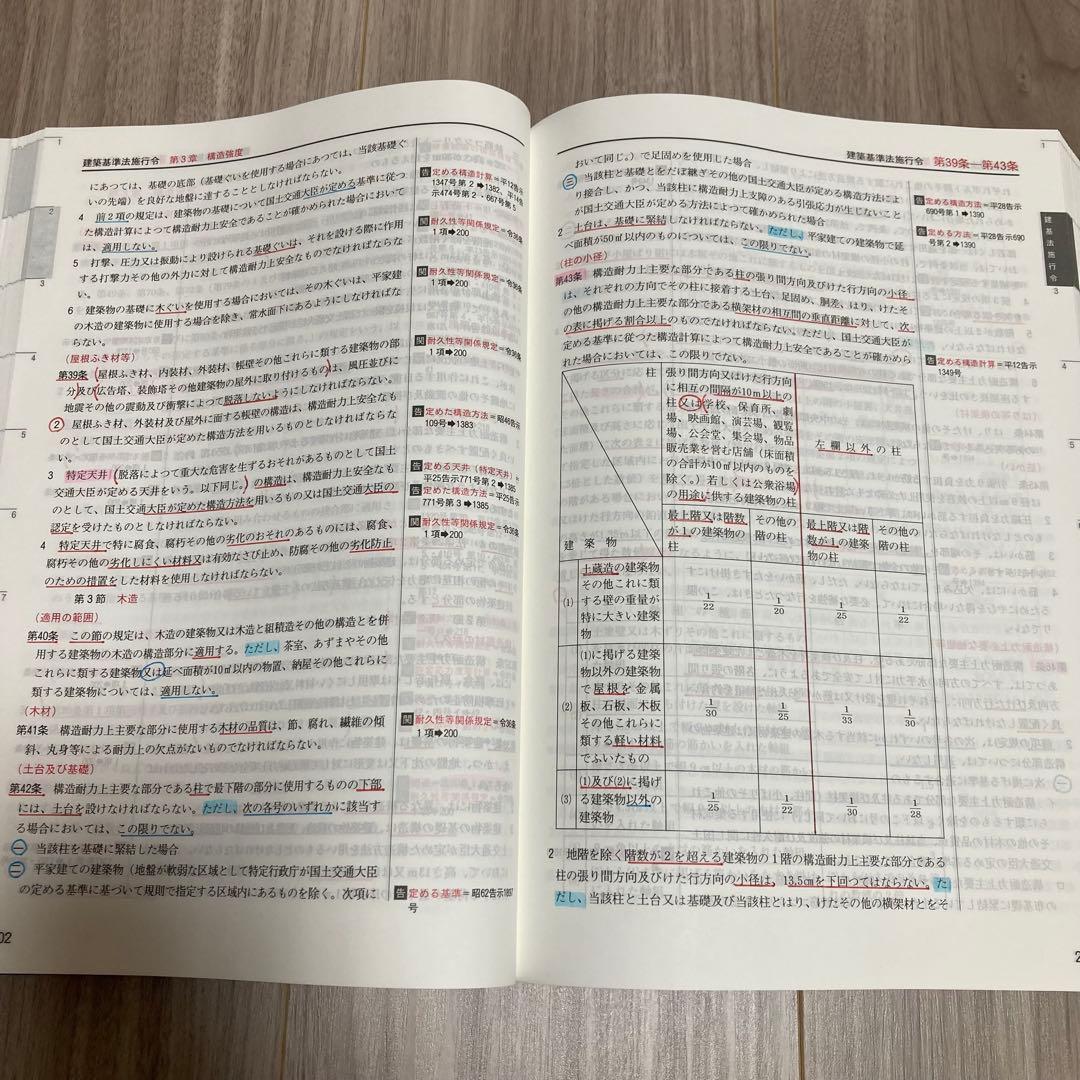 建築基準法施行令 第3章 構造強度
にあつては、基礎の底部（基礎ぐいを使用する場合にあつては、当該基礎ぐ
いの先端）を良好な地盤に達することとしなければならない。
4 前2項の規定は、建築物の基礎について国土交通大臣が定める基準に従つ
た構造計算によつて構造耐力上安全であることが確かめられた場合において
は、適用しない。
5 打撃、圧力又は振動により設けられる基礎ぐいは、それを設ける際に作用
する打撃力その他の外力に対して構造耐力上安全なものでなければならな
い。
6 建築物の基礎に木ぐいを使用する場合においては、その木ぐいは、平家建
の木造の建築物に使用する場合を除き、常水面下にあるようにしなければな
らない。
（屋根ふき材等）
第39条 屋根ふき材、内装材、外装材、帳壁その他これらに類する建築物の部
分及び広告塔、装飾塔その他建築物の屋外に取り付けるものは、風圧並びに
地震その他の震動及び衝撃によつて脱落しないようにしなければならない。
2 屋根ふき材、外装材及び屋外に面する帳壁の構造は、構造耐力上安全なも
のとして国土交通大臣が定めた構造方法を用いるものとしなければならない。
3 特定天井（脱落によつて重大な危害を生ずるおそれがあるものとして国土
交通大臣が定める天井をいう。以下同じ。）の構造は、構造耐力上安全なも
のとして、国土交通大臣が定めた構造方法を用いるもの又は国土交通大臣の
認定を受けたものとしなければならない。
4 特定天井で特に腐食、腐朽その他の劣化のおそれのあるものには、腐食、
腐朽その他の劣化しにくい材料又は有効なさび止め、防腐その他の劣化防止
のための措置をした材料を使用しなければならない。
第3節 木造
（適用の範囲）
第40条 この節の規定は、木造の建築物又は木造と組積造その他の構造とを併
用する建築物の木造の構造部分に適用する。ただし、茶室、あずまやその他
これらに類する建築物又は延べ面積が10㎡以内の物置、納屋その他これらに
類する建築物については、適用しない。
（木材）
第41条 構造耐力上主要な部分に使用する木材の品質は、節、腐れ、繊維の傾
斜、丸身等による耐力上の欠点がないものでなければならない。
（土台及び基礎）
第42条 構造耐力上主要な部分である柱で最下階の部分に使用するものの下部
には、土台を設けなければならない。ただし、次の各号のいずれかに該当す
る場合においては、この限りでない。
一 当該柱を基礎に緊結した場合
二 平家建ての建築物（地盤が軟弱な区域として特定行政庁が国土交通大臣
の定める基準に基づいて規則で指定する区域内にあるものを除く。次項に
告 定める構造計算＝平12告示
1347号第2➡1382、平14告
示474号第2・667号第5
関 耐久性等関係規定＝令36条
1項➡200
関 耐久性等関係規定＝令36条
1項➡200
関 耐久性等関係規定＝令36条
1項➡200
告 定めた構造方法＝昭46告示
109号➡1383
告 定める天井（特定天井）＝
平25告示771号第2➡1385
告 定めた構造方法＝平25告示
771号第3➡1385
関 耐久性等関係規定＝令36条
1項➡200
関 耐久性等関係規定＝令36条
1項➡200
告 定める基準＝昭62告示1897
号
02
建築基準法施行令 第39条―第43条
おいて同じ。）で足固めを使用した場合
三 当該柱と基礎とをだぼ継ぎその他の国土交通大臣が定める構造方法によ
り接合し、かつ、当該柱に構造耐力上支障のある引張応力が生じないこと
が国土交通大臣が定める方法によつて確かめられた場合
2 土台は、基礎に緊結しなければならない。ただし、平家建ての建築物で延
べ面積が50㎡以内のものについては、この限りでない。
（柱の小径）
第43条 構造耐力上主要な部分である柱の張り間方向及びけた行方向の小径
は、それぞれの方向でその柱に接着する土台、足固め、胴差、はり、けたそ
の他の構造耐力上主要な部分である横架材の相互間の垂直距離に対して、次
の表に掲げる割合以上のものでなければならない。ただし、国土交通大臣が
定める基準に従つた構造計算によつて構造耐力上安全であることが確かめら
れた場合においては、この限りでない。
柱
建築物
張り間方向又はけた行方向
に相互の間隔が10m以上の
柱又は学校、保育所、劇
場、映画館、演芸場、観覧
場、公会堂、集会場、物品
販売業を営む店舗（床面積
の合計が10㎡以内のものを
除く。）若しくは公衆浴場
の用途に供する建築物の柱
左欄以外の柱
最上階又は階数
が1の建築物の
柱
その他の
階の柱
最上階又は階
数が1の建築
物の柱
その他の
階の柱
(1) 土蔵造の建築物
その他これに類
する壁の重量が
特に大きい建築
物
1/22 1/20 1/25 1/22
(2) (1)に掲げる建築
物以外の建築物
で屋根を金属
板、石板、木板
その他これらに
類する軽い材料
でふいたもの
1/30 1/25 1/33 1/30
(3) (1)及び(2)に掲げ
る建築物以外の
建築物
1/25 1/22 1/30 1/28
2 地階を除く階数が2を超える建築物の1階の構造耐力上主要な部分である
柱の張り間方向及びけた行方向の小径は、13.5㎝を下回つてはならない。た
だし、当該柱と土台又は基礎及び当該柱とはり、けたその他の横架材とをそ
告 定める構造方法＝平28告示
690号第1➡1390
告 定める方法＝平28告示690
号第2➡1390
告 定める構造計算＝平12告示
1349号
建基法施行令
1
2
3
4
5
6
7
1
3
4
5
2